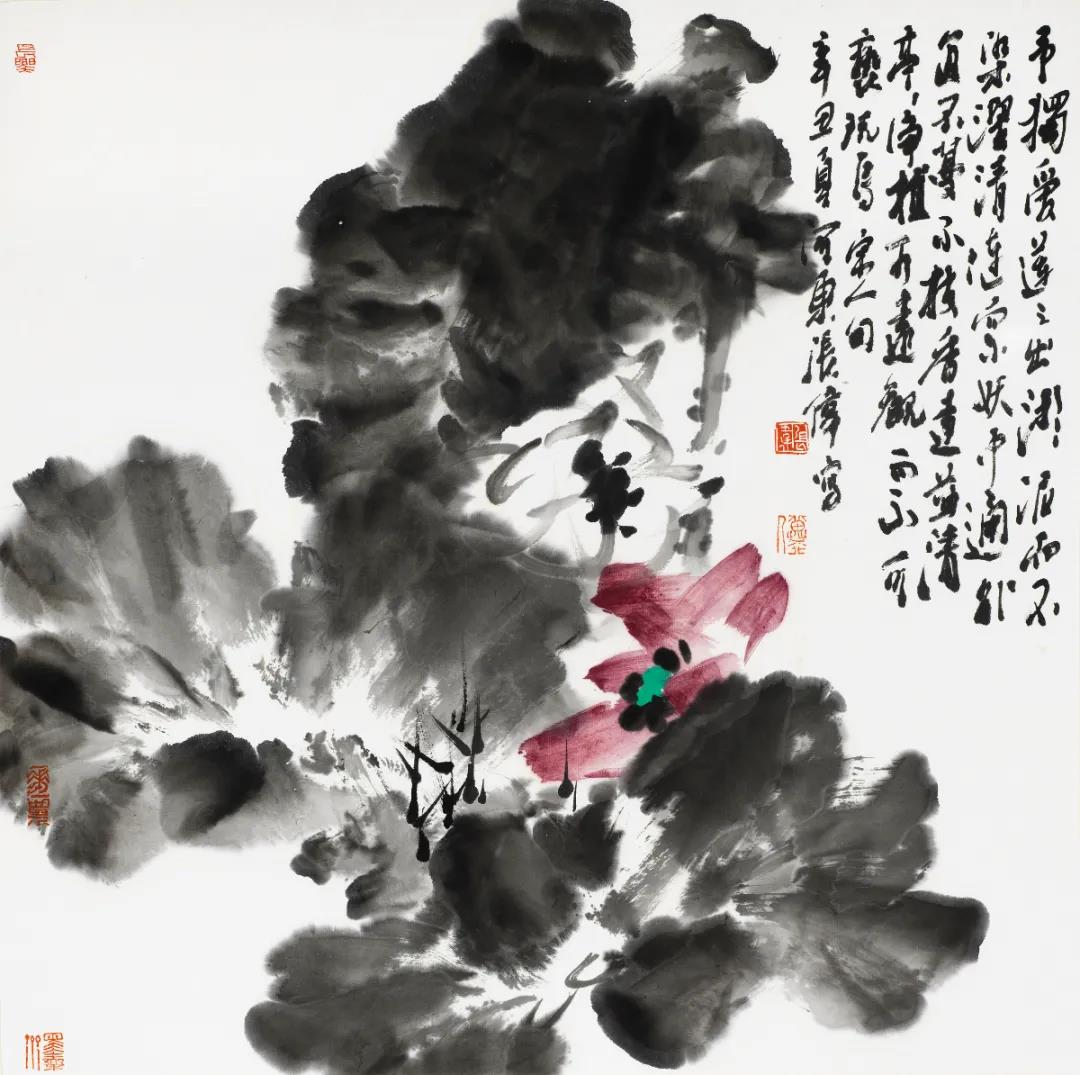 予獨愛蓮之出淤泥而不
染濯清漣而不妖中通外
直不蔓不枝香遠益清
亭〻淨植可遠觀而不可
褻玩焉 宋人句
辛丑夏河東張偉寫
張偉